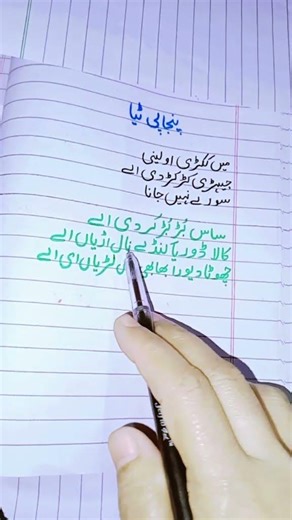 پنجابی ٹپا
میں ککڑی اولینی
جیہڑی کڑ کڑ دی اے
سورے نہیں جانا
ساس بڑ بڑ کر دی اے
کالا ڈوریا کنڈے نال اڑیاں اے
چھوٹا دیورا بھابھی لڑیاں ای اے